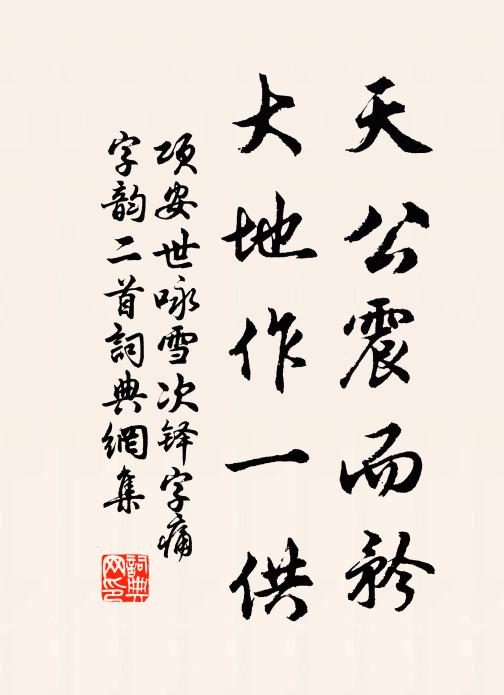 天公震而矜
大地作一供
项安世咏雪次铎字痛
字韵二首詞典網集
詞典网印